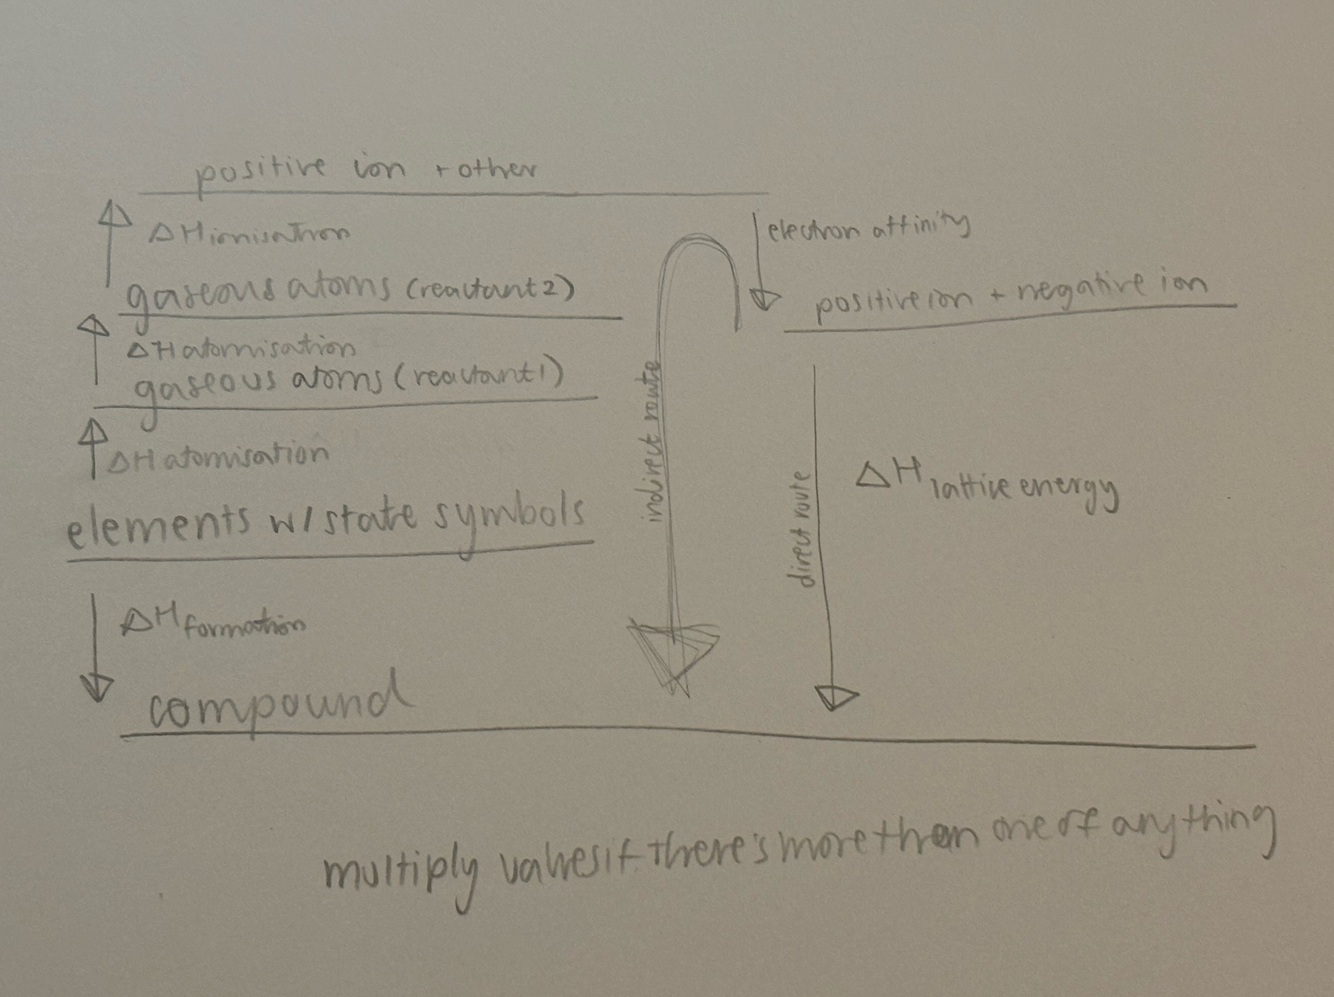 positive ion + other
ΔH ionisation
electron affinity
gaseous atoms (reactant 2)
positive ion + negative ion
ΔH atomisation
gaseous atoms (reactant 1)
ΔH atomisation
indirect route
direct route
ΔH lattice energy
elements w/ state symbols
ΔH formation
compound
multiply values if there's more than one of anything